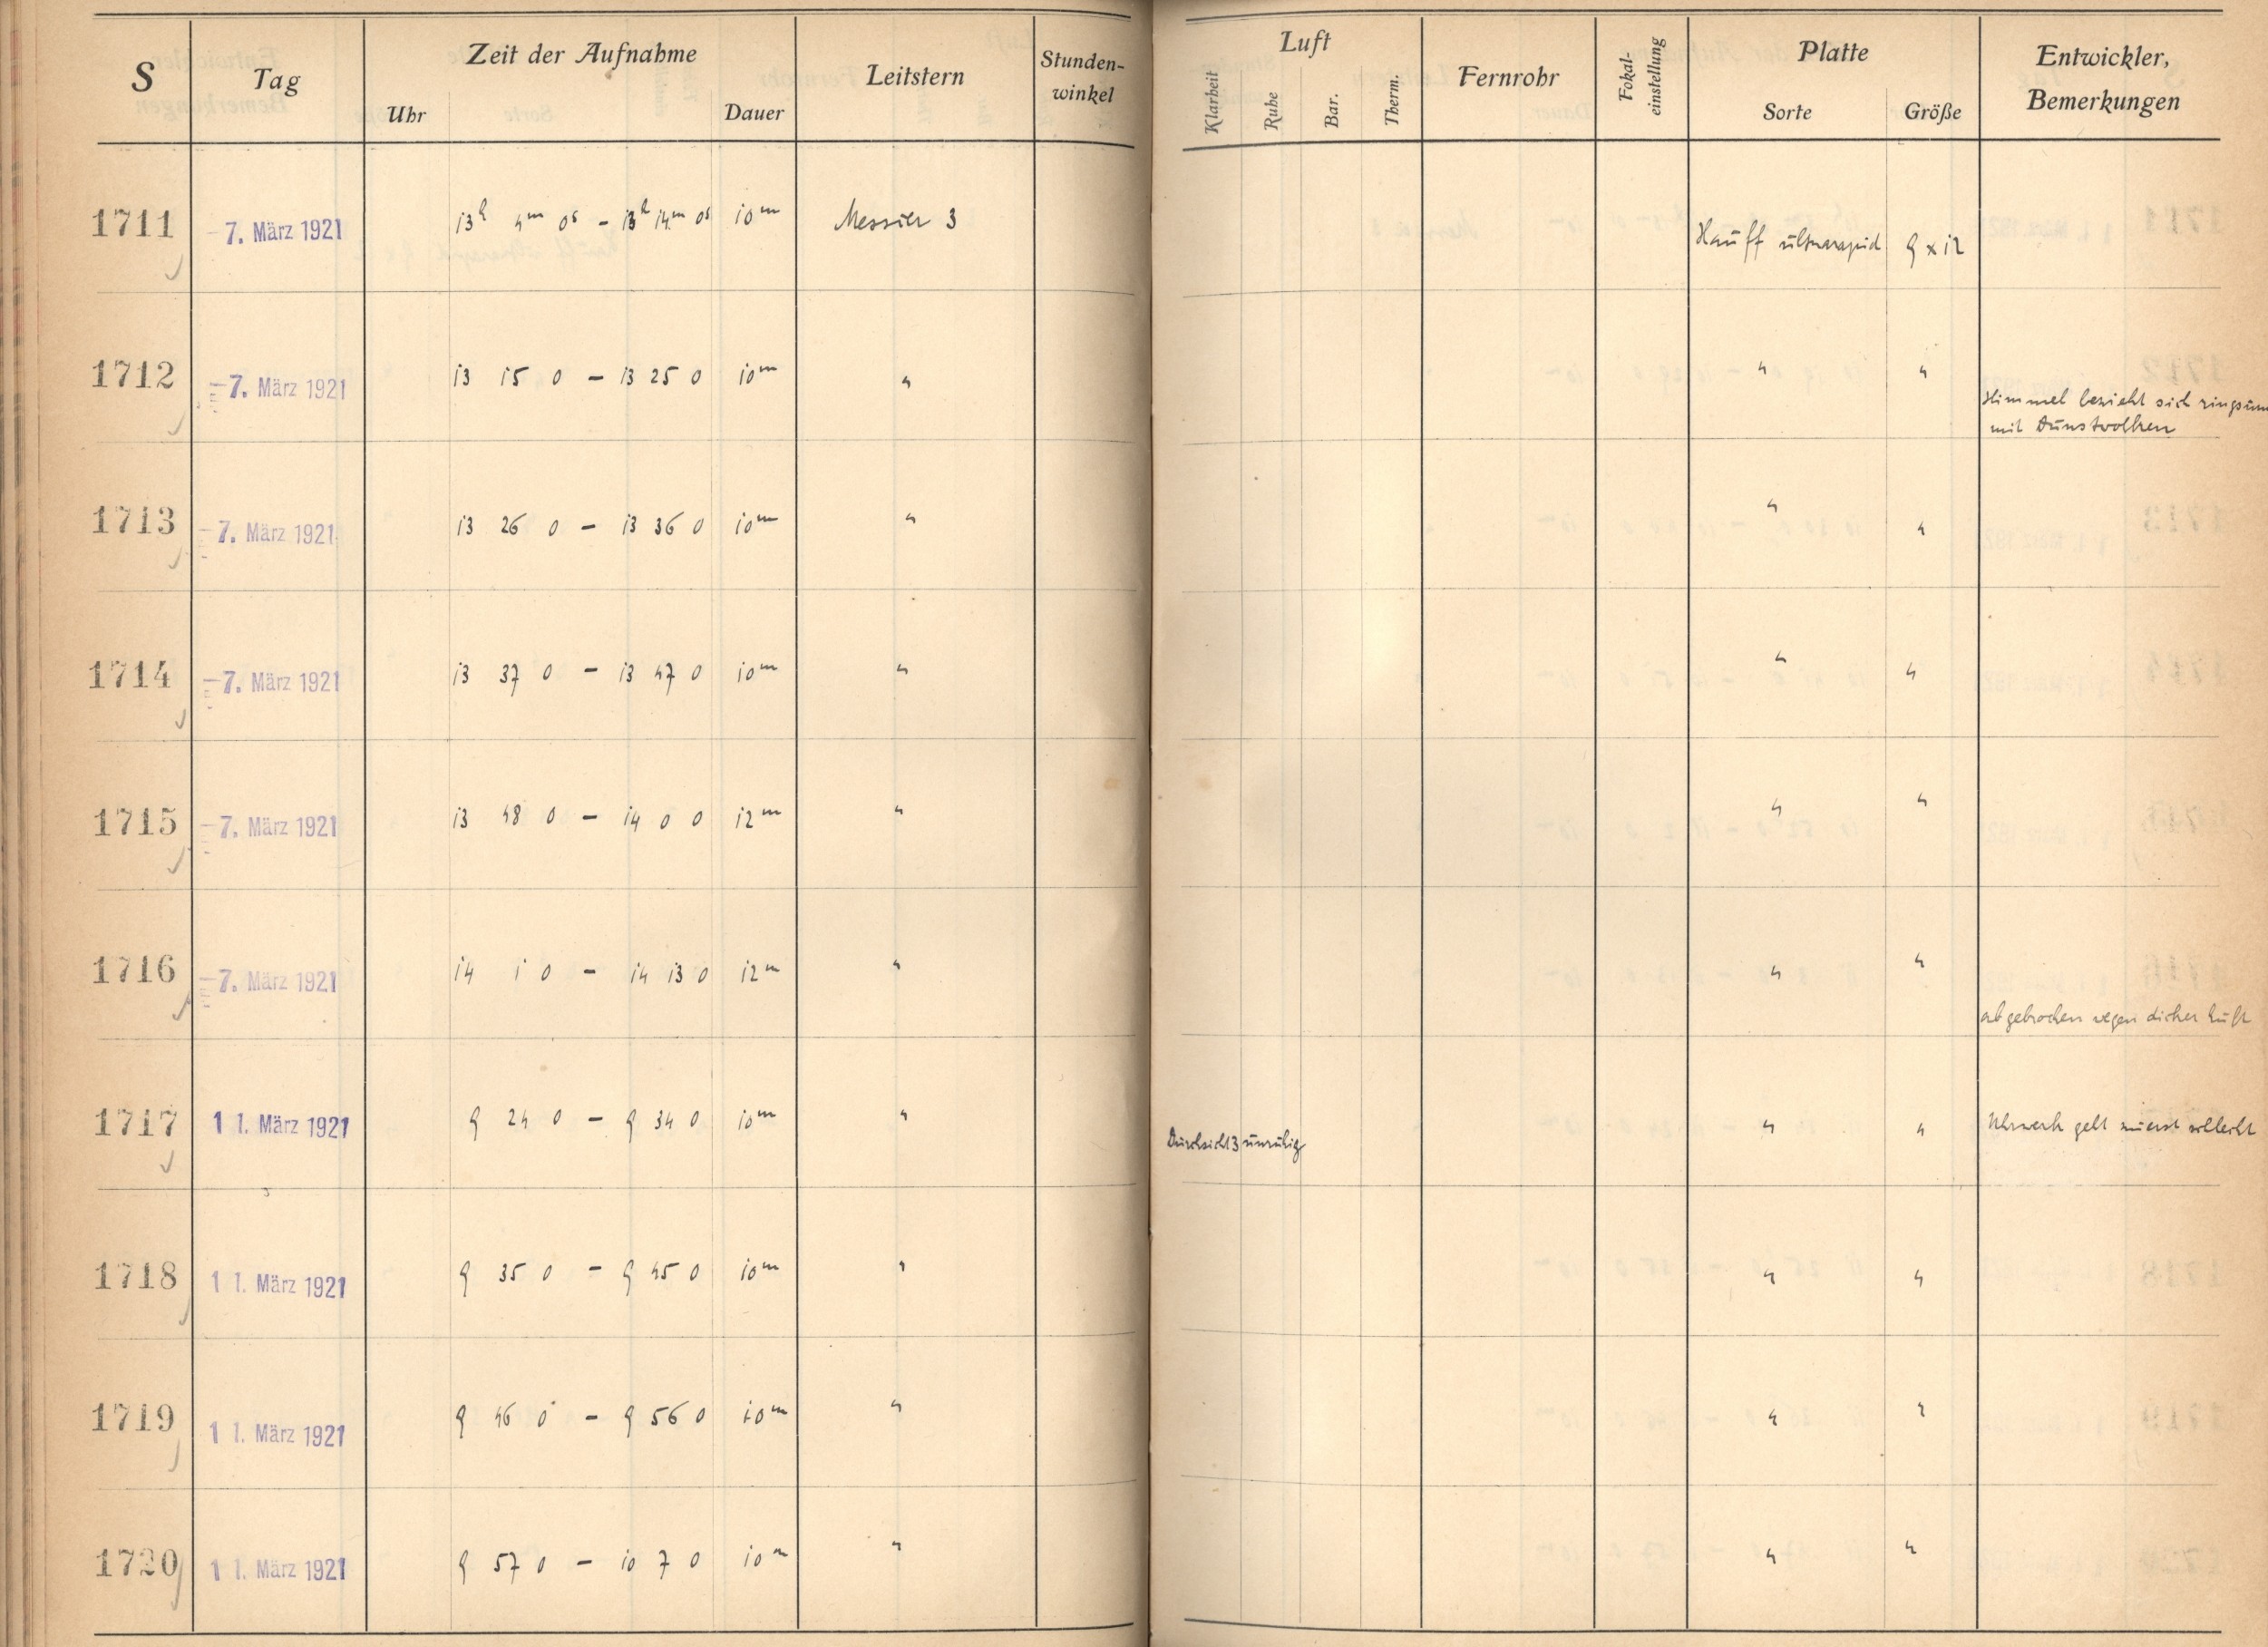 S Tag Zeit der Aufnahme Leitstern Stunden-winkel Luft Fernrohr Fokal-einstellung Platte Entwickler, Bemerkungen
Uhr Dauer Klarheit Ruhe Bar. Therm. Sorte Größe
1711 -7. März 1921 13h 4m 0s – 13h 14m 0s 10m Messier 3 Hauff ultrarapid 9 x 12
1712 -7. März 1921 13 15 0 – 13 25 0 10m " " "
Himmel bezieht sich ringsum
mit Dunstwolken
1713 -7. März 1921 13 26 0 – 13 36 0 10m " " "
1714 -7. März 1921 13 37 0 – 13 47 0 10m " " "
1715 -7. März 1921 13 48 0 – 14 0 0 12m " " "
1716 -7. März 1921 14 1 0 – 14 13 0 12m " " "
abgebrochen wegen dicker Luft
1717 11. März 1921 9 24 0 – 9 34 0 10m " Durchsicht 3 unruhig " " Uhrwerk geht zuerst schlecht
1718 11. März 1921 9 35 0 – 9 45 0 10m " " "
1719 11. März 1921 9 46 0 – 9 56 0 10m " " "
1720 11. März 1921 9 57 0 – 10 7 0 10m " " "